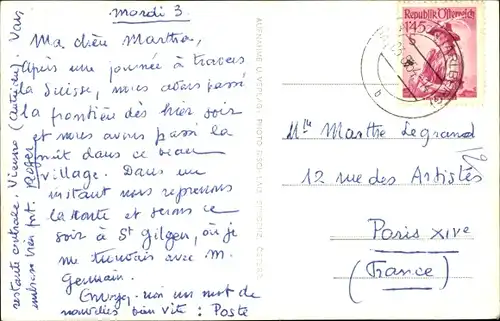 mardi 3
Ma chère Marthe,
Après une journée à travers
la Suisse, nous avons passé
la frontière dès hier soir
et nous avons passé la
nuit dans ce beau
village. Dans un
instant nous reprenons
la route et serons ce
soir à St Gilgen, où je
me trouvais avec M.
Germain.
Envoyez-moi un mot de
nouvelles bien vite : Poste
restante centrale. Vienne (Autriche). Vous
embrasse bien fort. Roger
Republik Österreich
1'45
Mlle Marthe Legrand
12 rue des Artistes
Paris XIVe
(France)